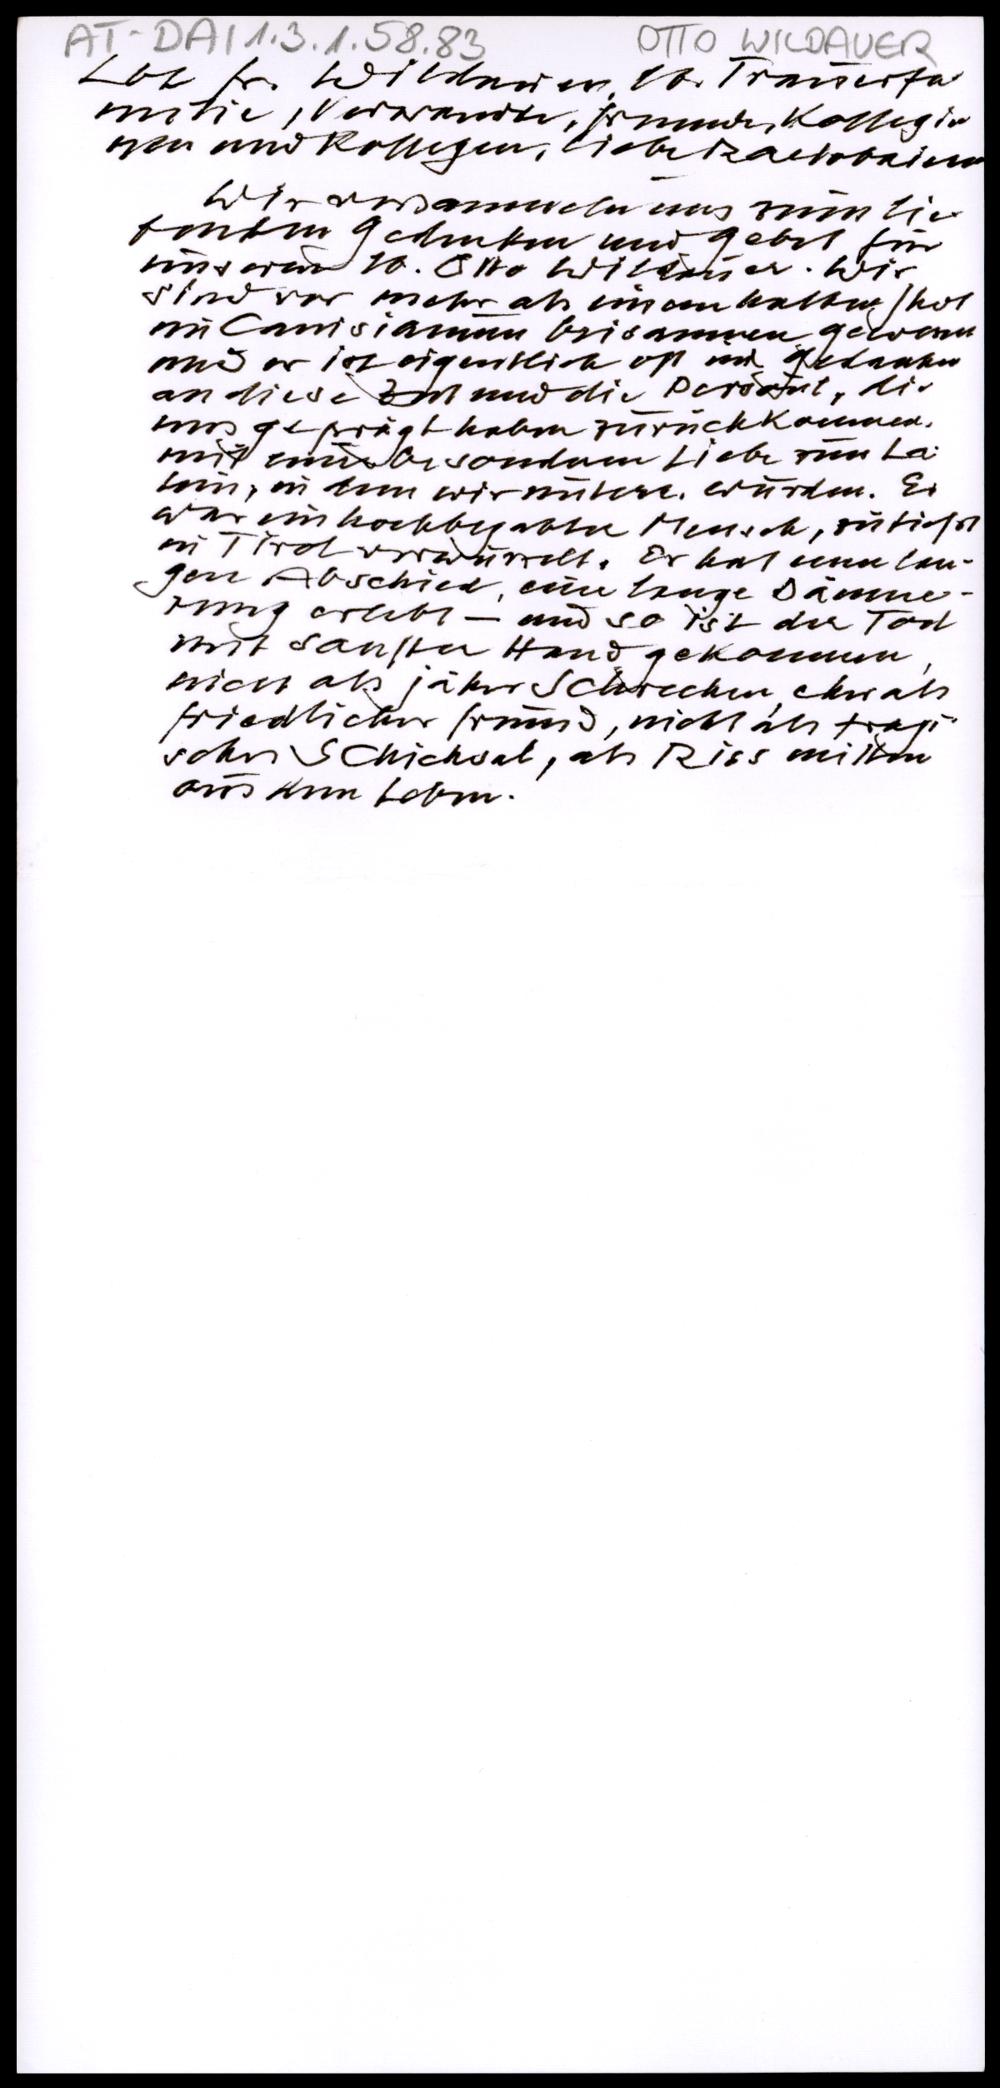 AT-DAI 1.3.1.58.83 OTTO WILDAUER
Lbe Fr. Wildauer, lb. Trauerfa
milie, Verwandte, Freunde, Kollegin
nen und Kollegen, liebe Raetobaiern
Wir versammeln uns zum lie
benden Gedenken und Gebet für
unseren lb. Otto Wildauer. Wir
sind vor mehr als einem halben Jhdt
im Canisianum beisammen gewesen
und er ist eigentlich oft mit Gedanken
an diese Zeit und die Persönl, die
uns geprägt haben zurückkommen.
mit einer besonderen Liebe zum La
tein, in dem wir unterr. wurden. Er
war ein hochbegabter Mensch, zutiefst
in Tirol verwurzelt. Er hat einen lan-
gen Abschied, eine lange Dämme-
rung erlebt – und so ist der Tod
mit sanfter Hand gekommen,
nicht als jäher Schrecken, eher als
friedlicher Freund, nicht als tragi
sches Schicksal, als Riss mitten
aus dem Leben.